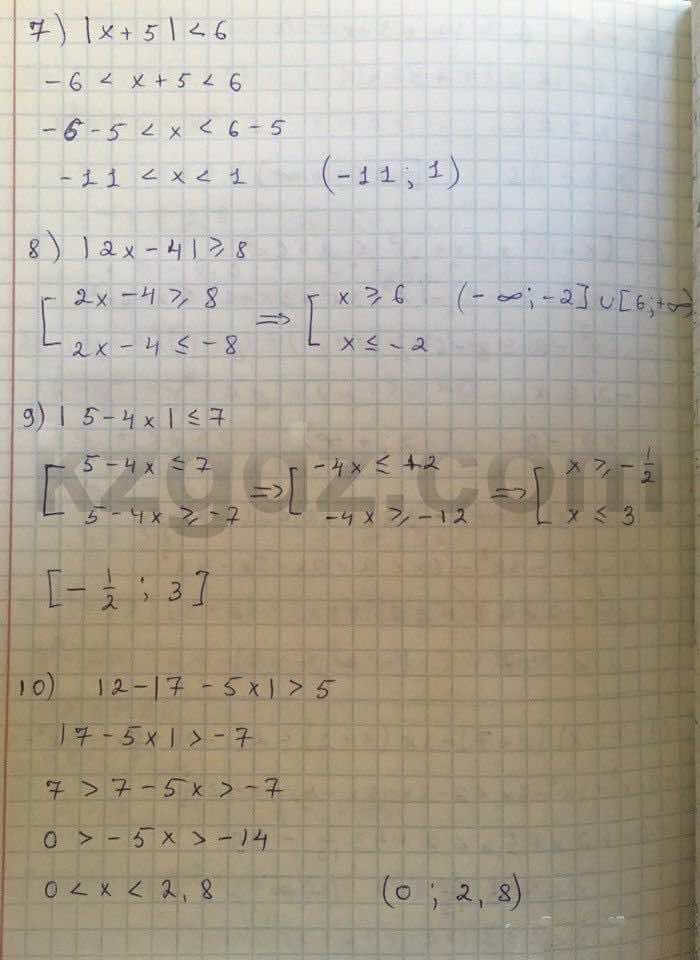 7) |x+5|<6
-6 < x+5 < 6
-6-5 < x < 6-5
-11 < x < 1 (-11; 1)
8) |2x-4|⩾8
[ 2x-4⩾8 ⇒ [ x⩾6 (-∞;-2]∪[6;+∞)
2x-4≤-8 x≤-2
9) |5-4x|≤7
[ 5-4x≤7 ⇒ [ -4x≤+2 ⇒ [ x⩾-1/2
5-4x⩾-7 -4x⩾-12 x≤3
kzgdz.com
[-1/2; 3]
10) 12-|7-5x|>5
|7-5x|>-7
7>7-5x>-7
0>-5x>-14
0<x<2,8 (0; 2,8)